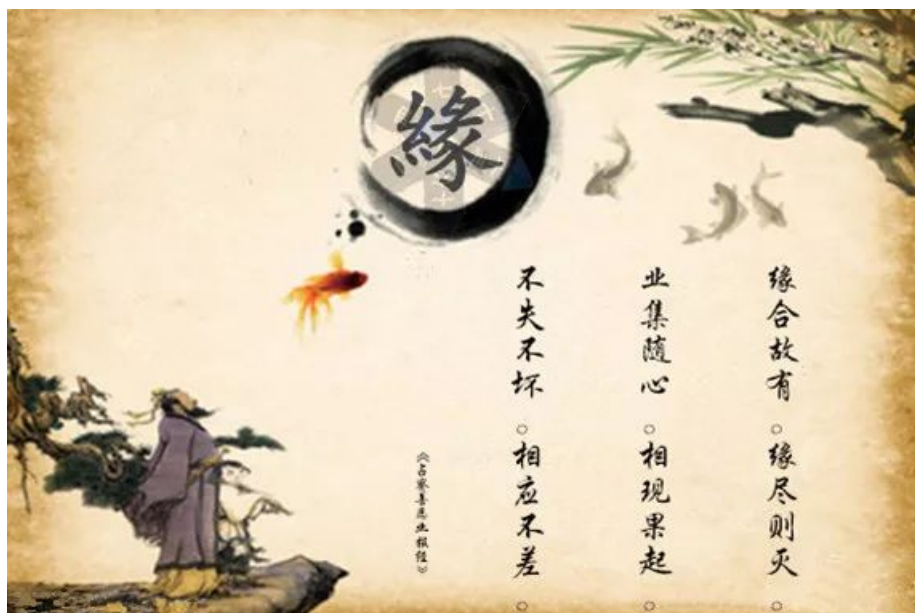 緣
缘合故有。缘尽则灭。
业集随心。相现果起。
不失不坏。相应不差。
《占察善恶业报经》